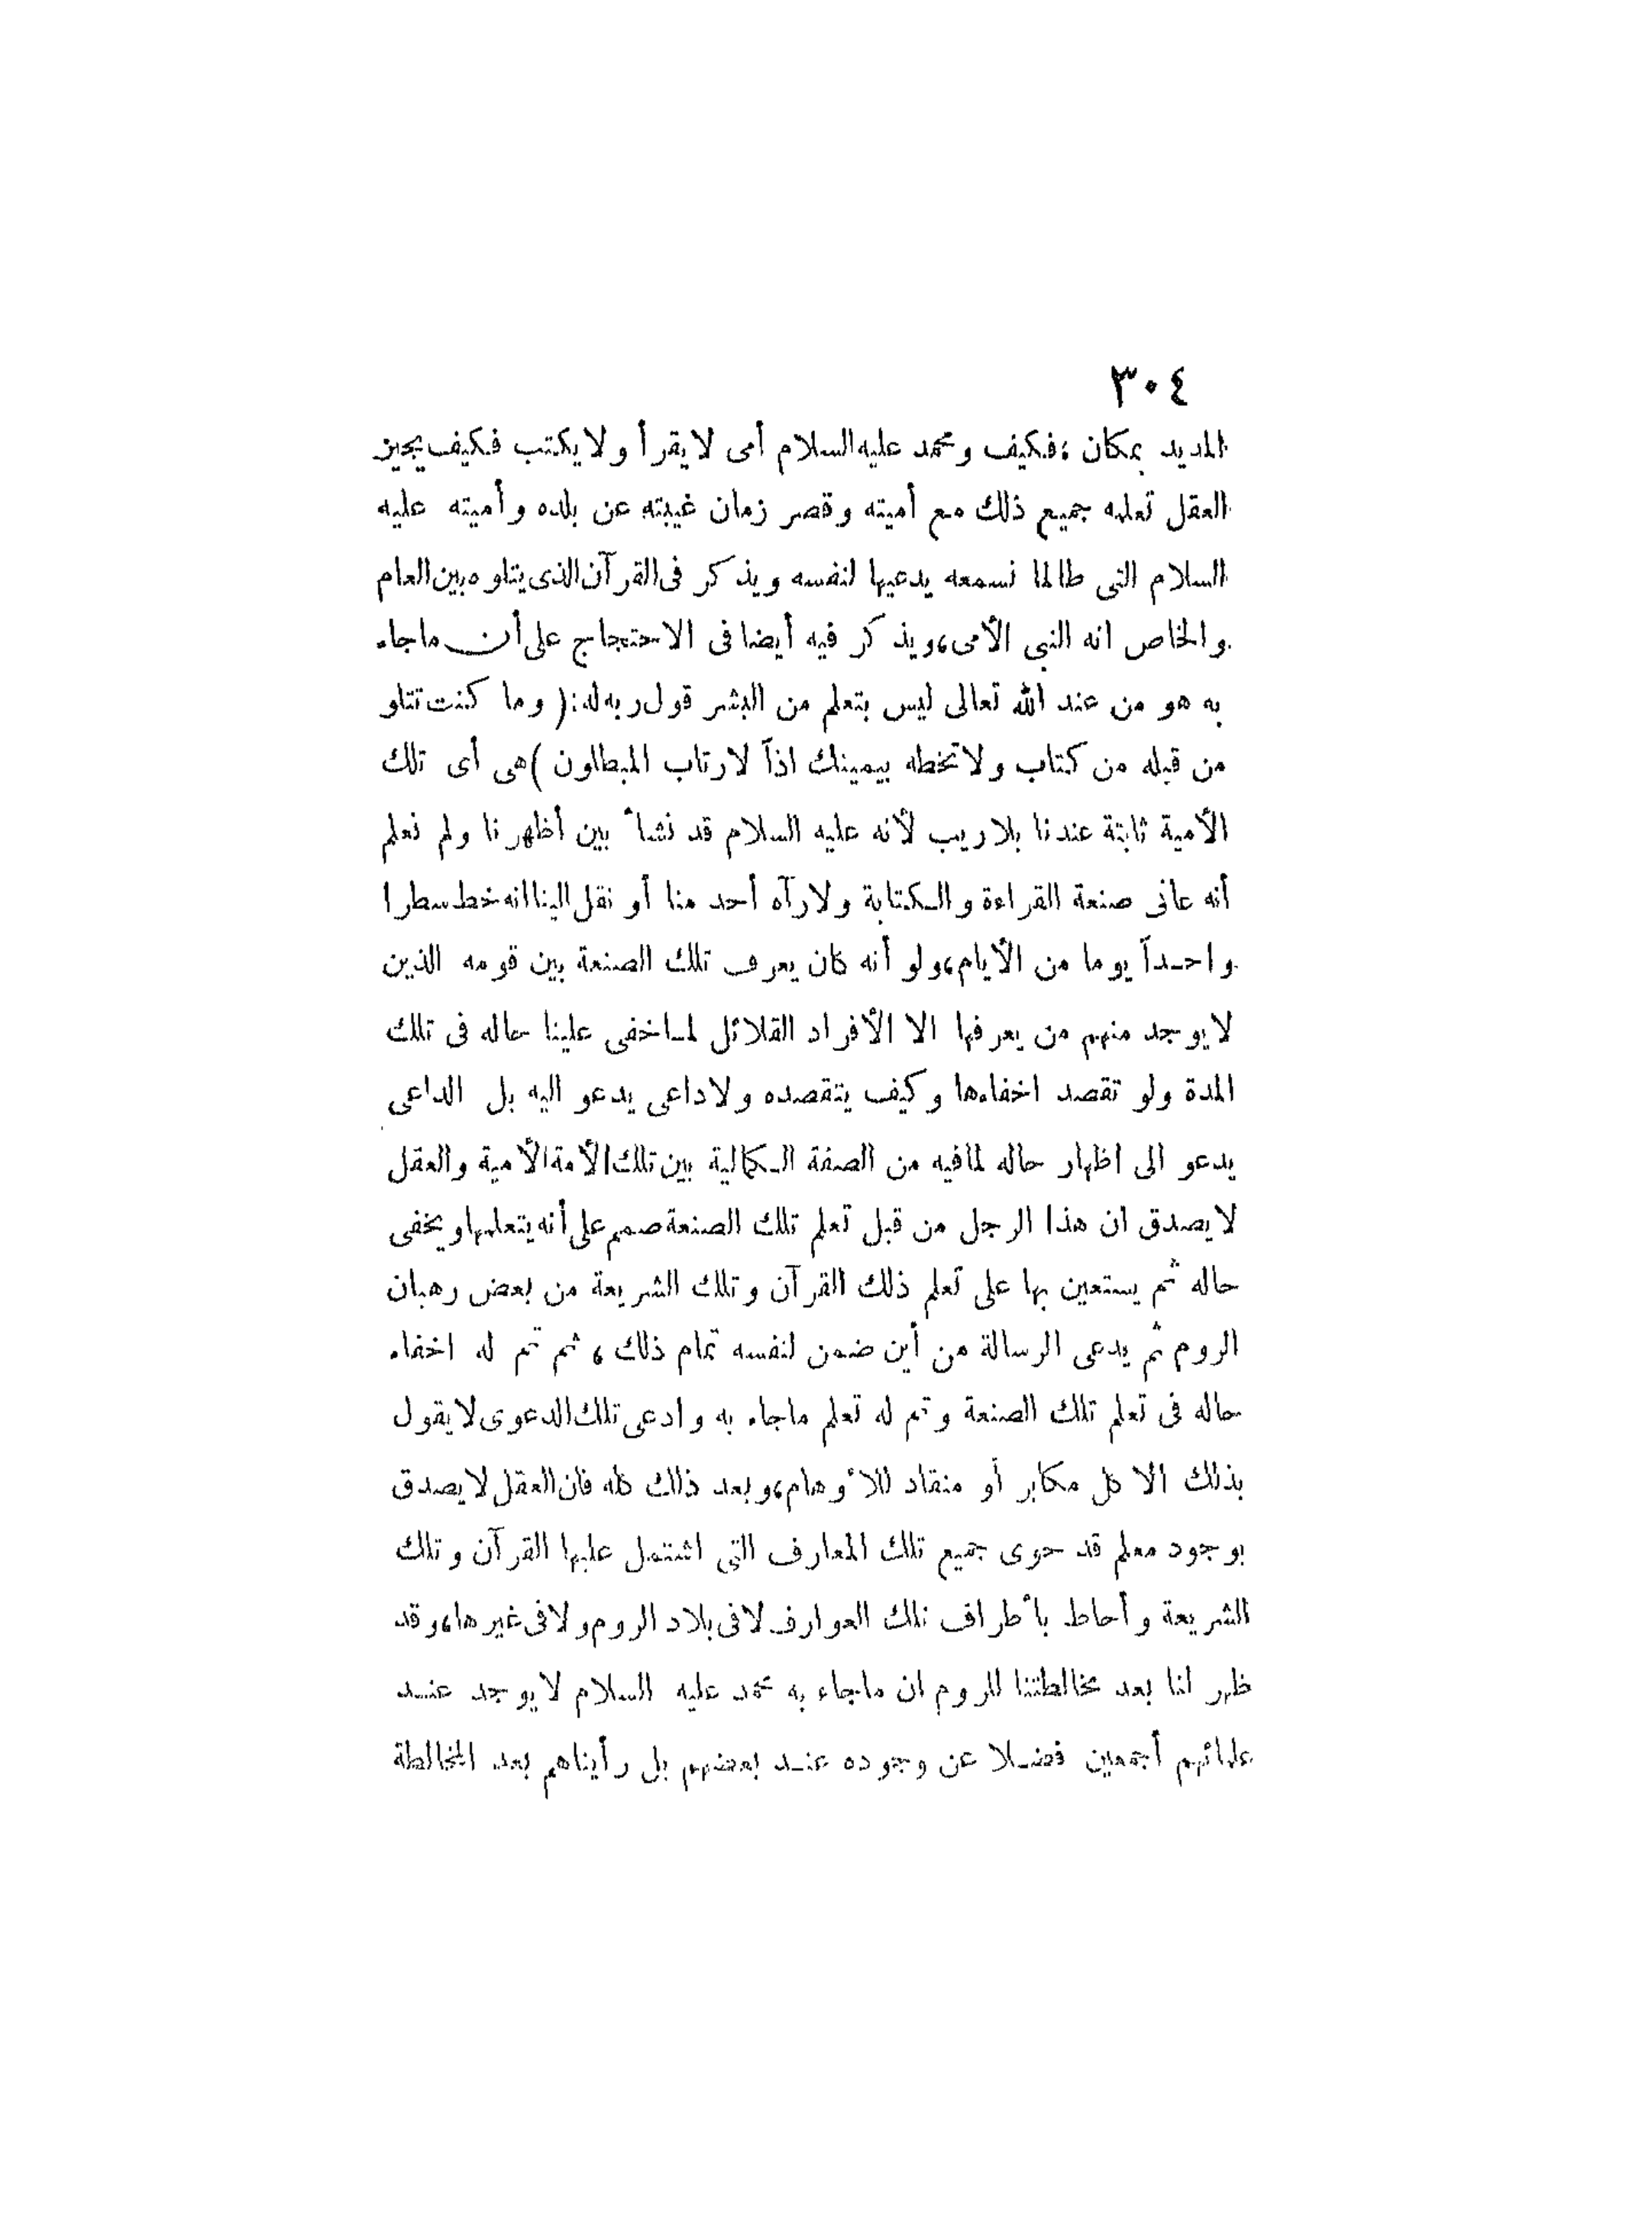 ٣٠٤
المديد بمكان، فكيف ومحمد عليه السلام أمى لا يقرأ ولا يكتب فكيف يجيز
العقل تعلمه جميع ذلك مع أميته وقصر زمان غيبته عن بلده وأميته عليه
السلام التى طالما نسمعه يدعيها لنفسه ويذكر فى القرآن الذى يتلوه بين العام
والخاص انه النبى الأمى، ويذكر فيه أيضا فى الاحتجاج على أن ماجاء
به هو من عند الله تعالى ليس بتعلم من البشر قول ربه له: (وما كنت تتلو
من قبله من كتاب ولا تخطه بيمينك اذاً لارتاب المبطلون) هى أى تلك
الأمية ثابتة عندنا بلا ريب لأنه عليه السلام قد نشأ بين أظهرنا ولم نعلم
أنه عانى صنعة القراءة والكتابة ولا رآه أحد منا أو نقل الينا انه خط سطرا
واحداً يوما من الأيام، ولو أنه كان يعرف تلك الصنعة بين قومه الذين
لا يوجد منهم من يعرفها الا الأفراد القلائل لما خفى علينا حاله فى تلك
المدة ولو تقصد اخفاءها وكيف يتقصده ولا داعى يدعو اليه بل الداعى
يدعو الى اظهار حاله لما فيه من الصفة الكمالية بين تلك الأمة الأمية والعقل
لا يصدق ان هذا الرجل من قبل تعلم تلك الصنعة صمم على أنه يتعلمها ويخفى
حاله ثم يستعين بها على تعلم ذلك القرآن وتلك الشريعة من بعض رهبان
الروم ثم يدعى الرسالة من أين ضمن لنفسه تمام ذلك، ثم تم له اخفاء
حاله فى تعلم تلك الصنعة وتم له تعلم ماجاء به وادعى تلك الدعوى لا يقول
بذلك الا كل مكابر أو منقاد للأوهام، وبعد ذلك كله فان العقل لا يصدق
بوجود معلم قد حوى جميع تلك المعارف التى اشتمل عليها القرآن وتلك
الشريعة وأحاط بأطراف تلك العوارف لا فى بلاد الروم ولا فى غيرها، وقد
ظهر لنا بعد مخالطتنا للروم ان ماجاء به محمد عليه السلام لا يوجد عند
علمائهم أجمعين فضلا عن وجوده عند بعضهم بل رأيناهم بعد المخالطة